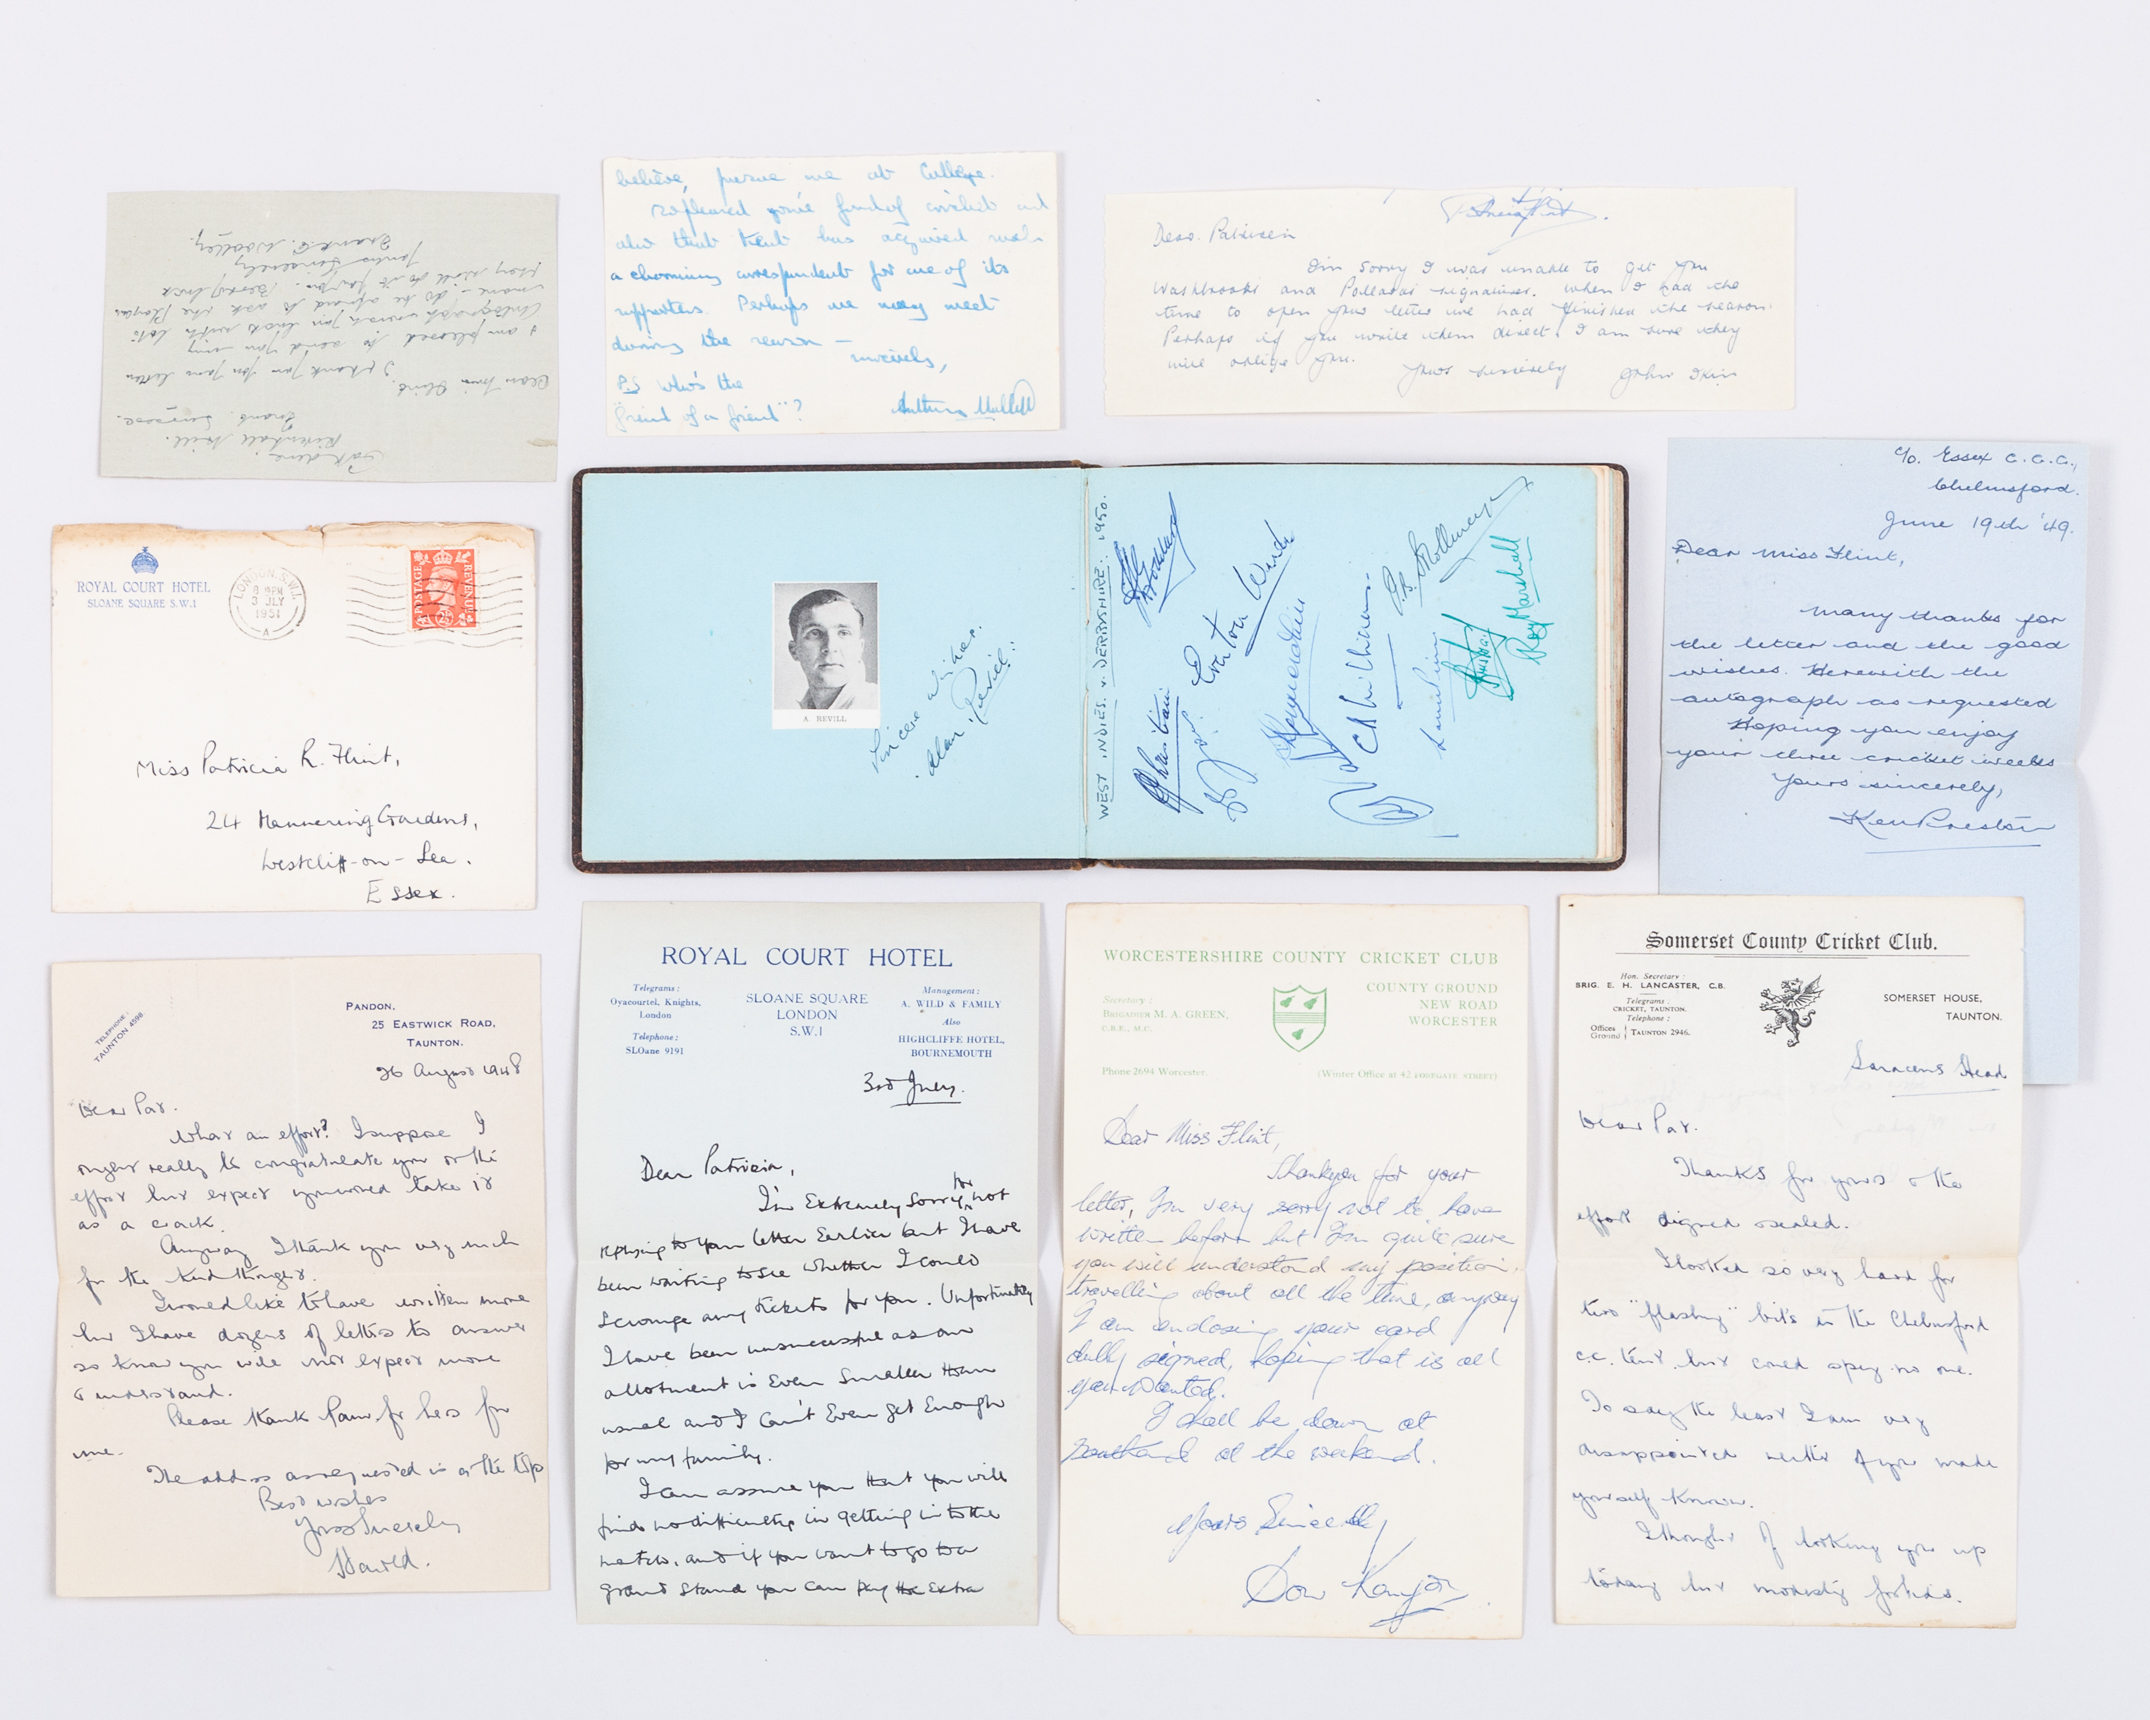 Oakdene.
Riverhall Hill.
Frant. Sussex.
Dear Miss Flint.
I thank you for your letter
I am pleased to send you my
Autograph wish you luck with lots
more - do be afraid to ask the Players
they will do it for you. Best of luck
Yours Sincerely
Frank E. Woolley.
believe, pursue me at College.
So pleased you're fond of cricket and
also that Kent has acquired such
a charming correspondent for one of its
supporters. Perhaps we may meet
during the season —
sincerely,
P.S Who's the
"friend of a friend"?
Dear Patricia
I'm sorry I was unable to get you
Washbrooks and Pollards signatures. When I had the
time to open your letter we had finished the season.
Perhaps if you write them direct. I am sure they
will oblige you.
Yours sincerely John Ikin
C/o. Essex C.C.C.,
Chelmsford.
June 19th '49.
Dear Miss Flint,
Many thanks for
the letter and the good
wishes. Herewith the
autograph as requested
Hoping you enjoy
your three cricket weeks
Yours sincerely,
Ken Preston
ROYAL COURT HOTEL
SLOANE SQUARE S.W.1
LONDON. S.W.1.
8 PM
3 JLY
1951
A
POSTAGE
REVENUE
Miss Patricia R. Flint,
24 Mannering Gardens,
Westcliff-on-Sea.
Essex.
A. REVILL
Sincere wishes.
Alan Revill.
WEST INDIES. v. DERBYSHIRE. 1950.
R J Christiani
Everton Weekes
C B Williams
J. B. Stollmeyer
Roy Marshall
TELEPHONE:
TAUNTON 4598.
PANDON,
25 EASTWICK ROAD,
TAUNTON.
26 August 1948
Dear Pat.
What an effort? I suppose I
ought really to congratulate you on the
effort but expect you would take it
as a crack.
Anyway I thank you very much
for the kind thoughts.
I would like to have written more
but I have dozens of letters to answer
so know you will not expect more
& understand.
Please thank Pam for hers for
me.
The address as requested is at the top
Best wishes
Yours Sincerely
Harold.
ROYAL COURT HOTEL
Telegrams:
Oyacourtel, Knights,
London
Telephone:
SLOane 9191
SLOANE SQUARE
LONDON
S.W.1
Management:
A. WILD & FAMILY
Also
HIGHCLIFFE HOTEL,
BOURNEMOUTH
3rd July.
Dear Patricia,
I'm Extremely sorry for not
replying to your letter Earlier but I have
been waiting to see whether I could
scrounge any tickets for you. Unfortunately
I have been unsuccessful as our
allotment is Even smaller than
usual and I can't Even get Enough
for my family.
I can assure you that you will
find no difficulty in getting in to the
match, and if you want to go to a
grand stand you can pay the Extra
WORCESTERSHIRE COUNTY CRICKET CLUB
Secretary:
BRIGADIER M. A. GREEN,
C.B.E., M.C.
COUNTY GROUND
NEW ROAD
WORCESTER
Phone 2694 Worcester.
(Winter Office at 42 FOREGATE STREET)
Dear Miss Flint,
Thankyou for your
letter, I'm very sorry not to have
written before but I'm quite sure
you will understand my position,
travelling about all the time, anyway
I am enclosing your card
dully signed, hoping that is all
you wanted.
I shall be down at
Southend at the weekend.
Yours Sincerely
Don Kenyon
Somerset County Cricket Club.
Hon. Secretary:
BRIG. E. H. LANCASTER, C.B.
Telegrams:
CRICKET, TAUNTON.
Telephone:
Offices
Ground } TAUNTON 2946.
SOMERSET HOUSE,
TAUNTON.
Saracens Head
Dear Pat.
Thanks for yours & the
effort signed & sealed.
I looked so very hard for
two "flashing" bits in the Chelmsford
C.C. tent, but could spy no one.
To say the least I am very
disappointed neither of you made
yourself known.
I thought of looking you up
today but modesty forbids.